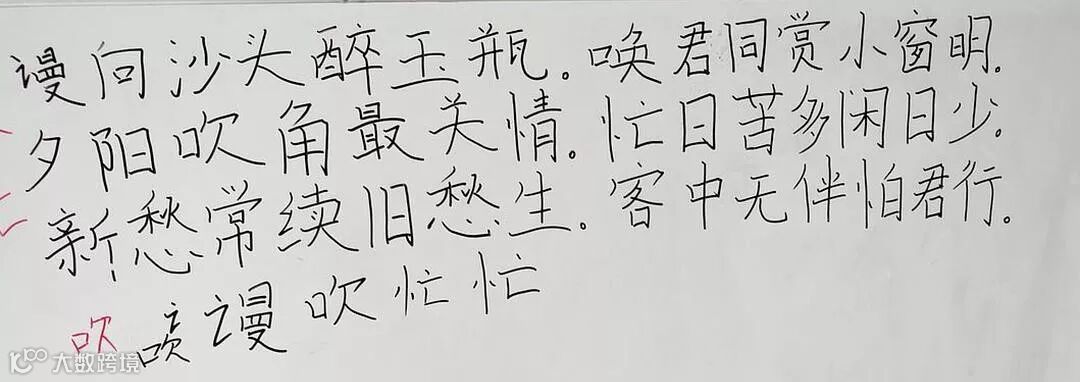 谩向沙头醉玉瓶。唤君同赏小窗明.
夕阳吹角最关情.忙日苦多闲日少.
新愁常续旧愁生.客中无伴怕君行.
吹 谩吹忙忙
大数跨境